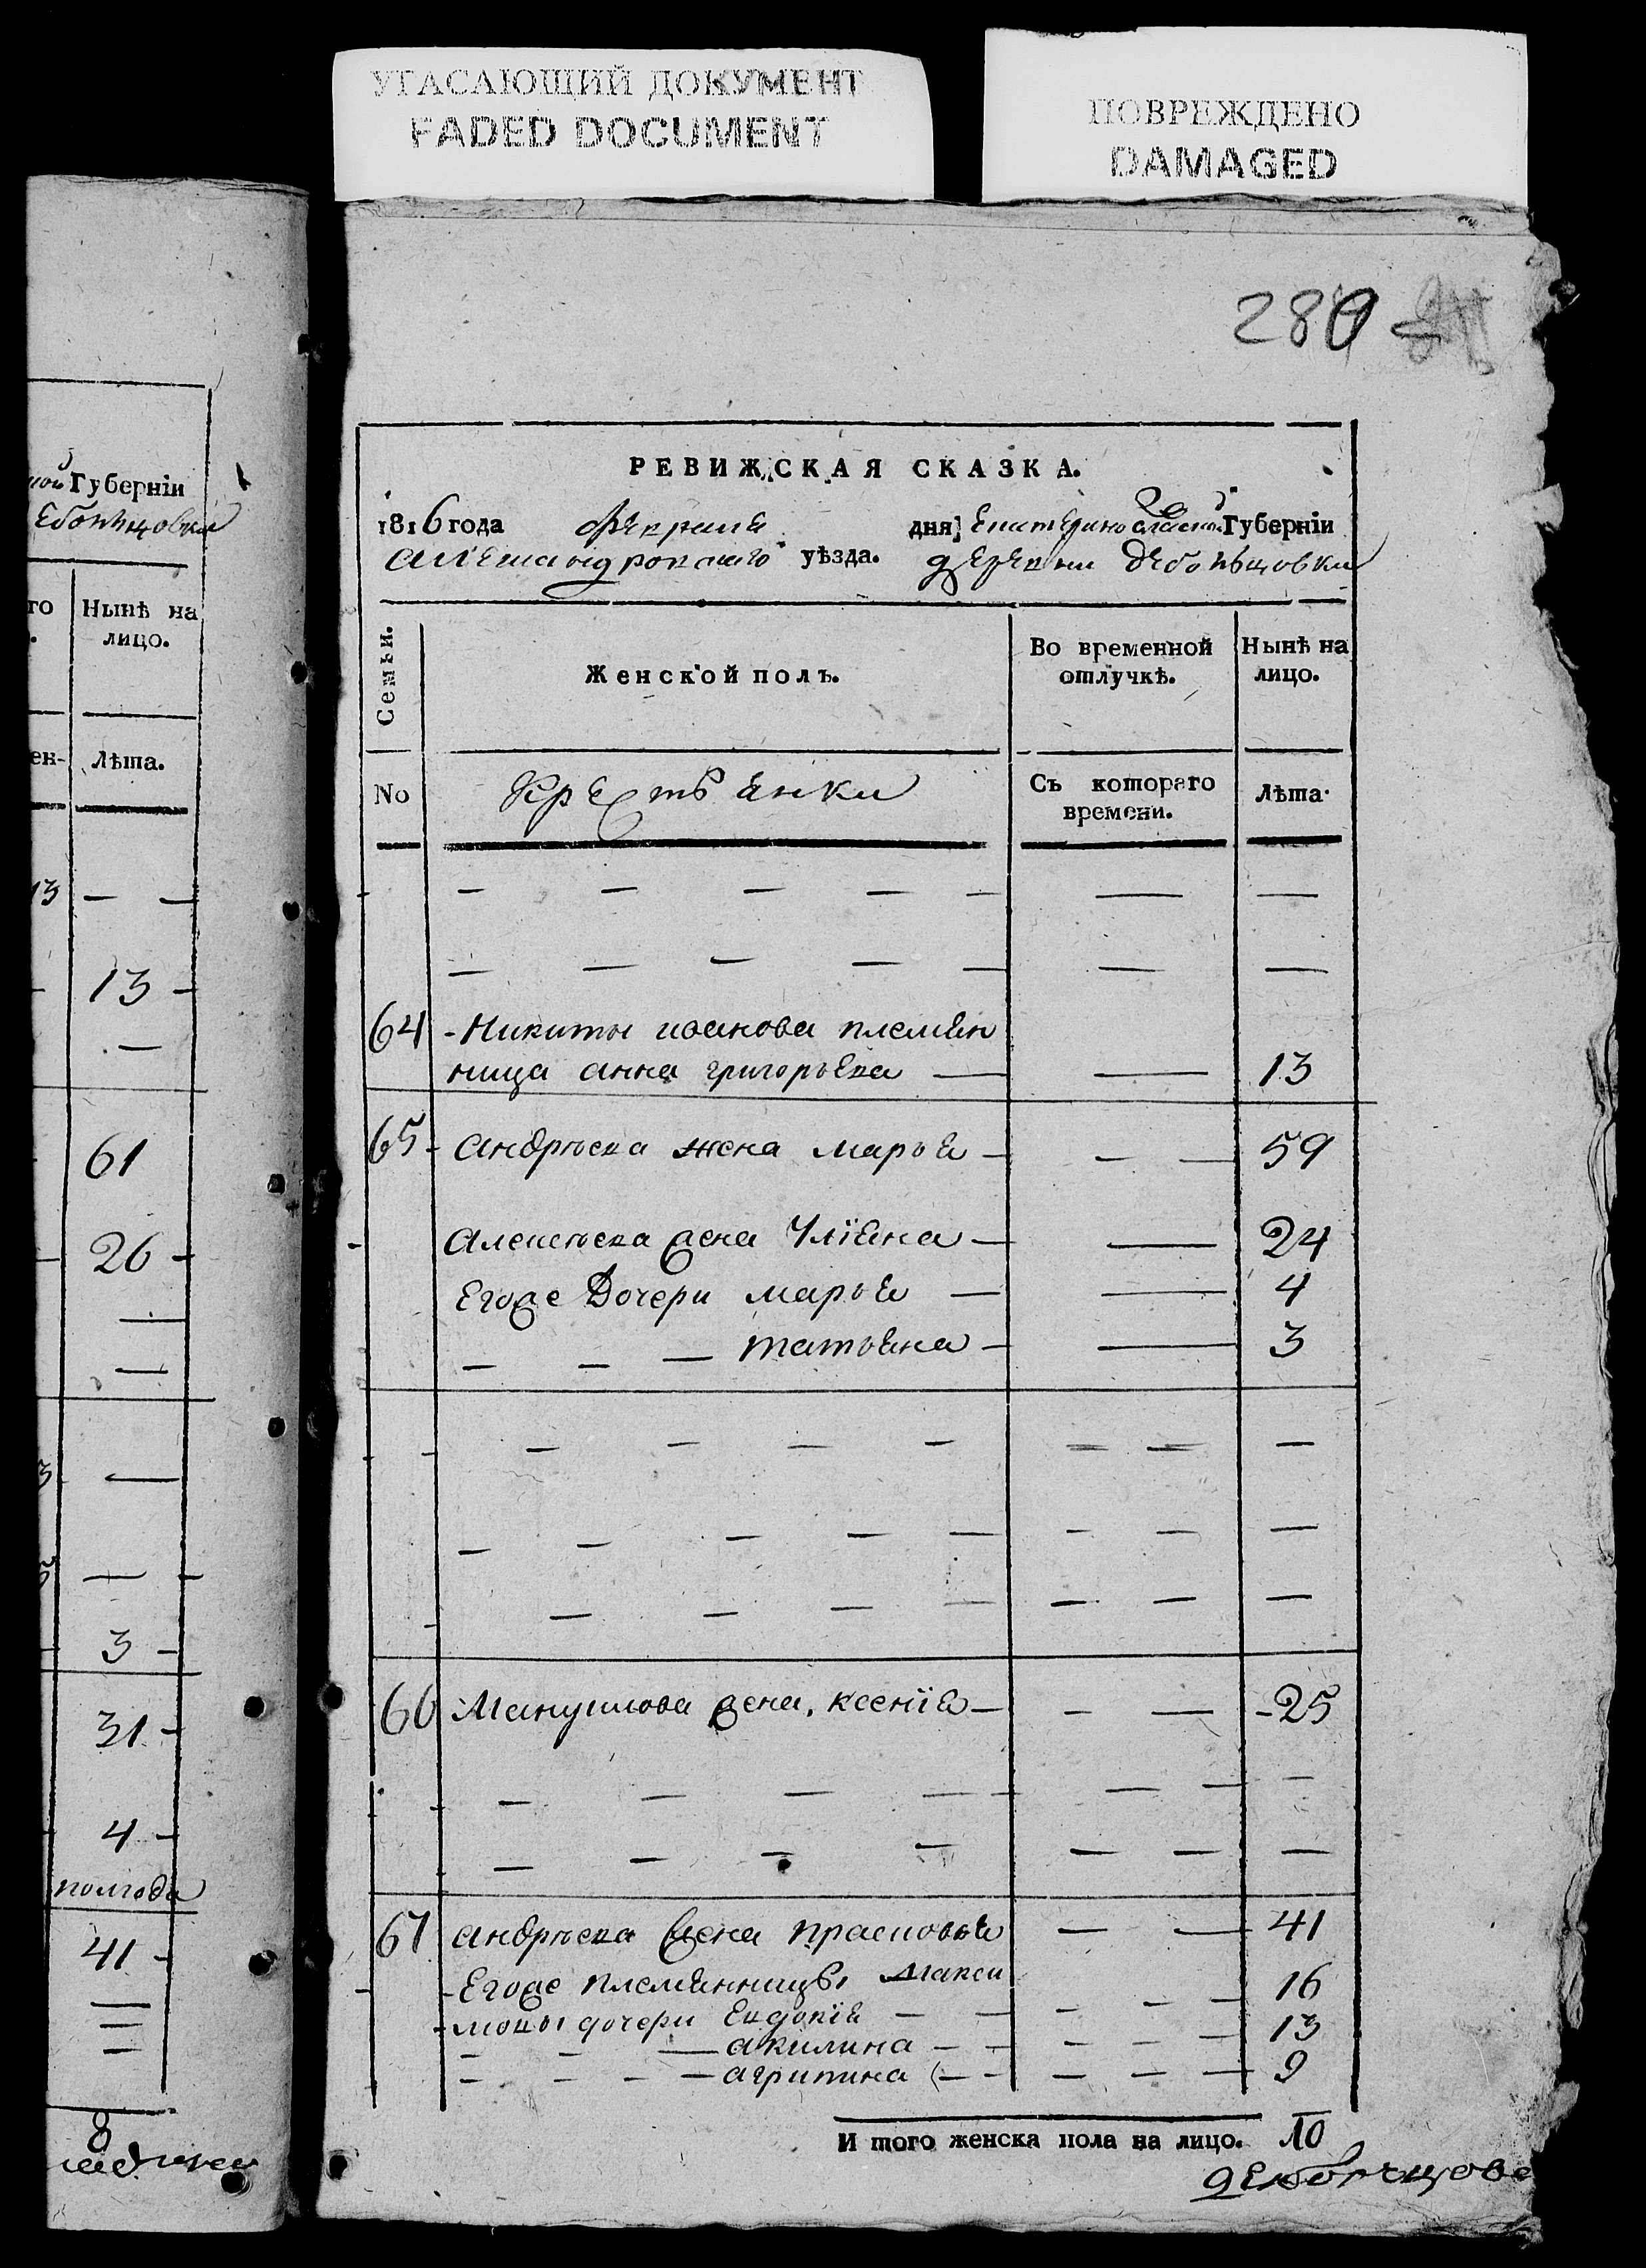 УГАСАЮЩИЙ ДОКУМЕНТ
FADED DOCUMENT
ПОВРЕЖДЕНО
DAMAGED
280
ной Губернiи
ебоньцовки
го Нынѣ на
лицо.
ен- Лѣта.
13 — —
13 —
—
61
26 —
—
—
3 —
—
3 —
31 —
4 —
полгода
41 —
—
—
—
8
РЕВИЖСКАЯ СКАЗКА.
1816 года февраля дня Екатеринославской Губернiи
Александровскаго уѣзда. деревни дебоньцовки
Семьи. Женской полъ. Во временной отлучкѣ. Нынѣ на лицо.
No Крестьянки Съ котораго времени. Лѣта.
— — — — — — —
— — — — — — —
64 - Никиты иванова племян
ница анна григорьева — — 13
65 - андрѣева жена марья — — — 59
Алексѣева жена Улiяна — — 24
Егоже Дочери марья — — 4
— — — татьяна — — 3
— — — — — — —
— — — — — — — —
— — — — — — —
66 Мануилова жена, ксенiя — — — - 25
— — — — — — —
— — — — — — —
67 андрѣева жена прасковья — — 41
- Егоже племянницы Макси
- мовы дочери Евдокiя — — — — — 16
— — — акилина — — — — — 13
— — — — агрипина — — — — — 9
И того женска пола на лицо. 10